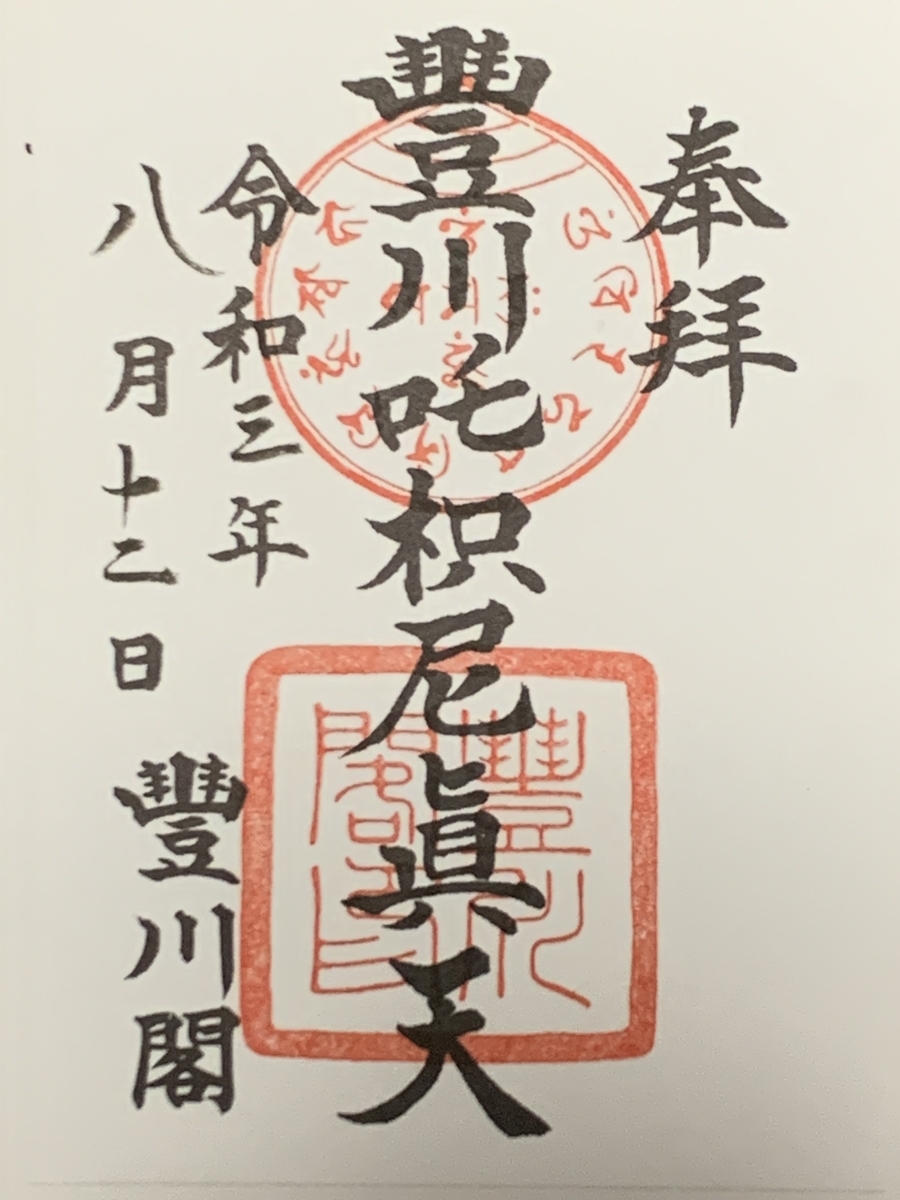 奉拜
豐川吒枳尼眞天
令和三年
八月十二日
豐川閣
豐川閣印